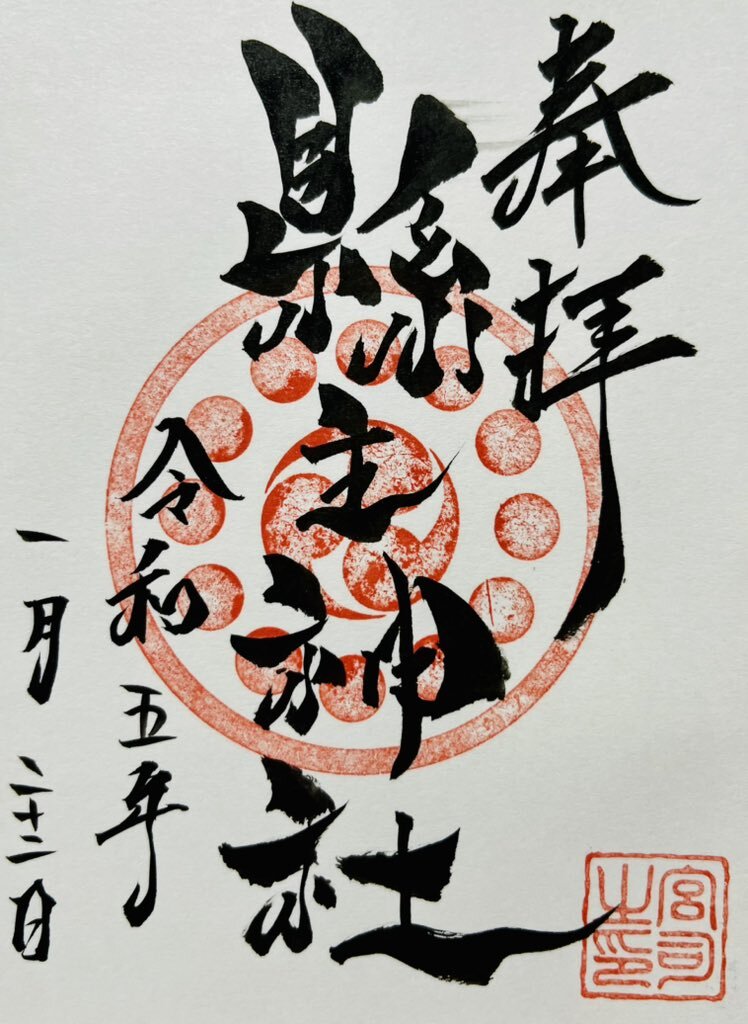 奉拝
縣主神社
令和五年
一月二十二日
宮司之印